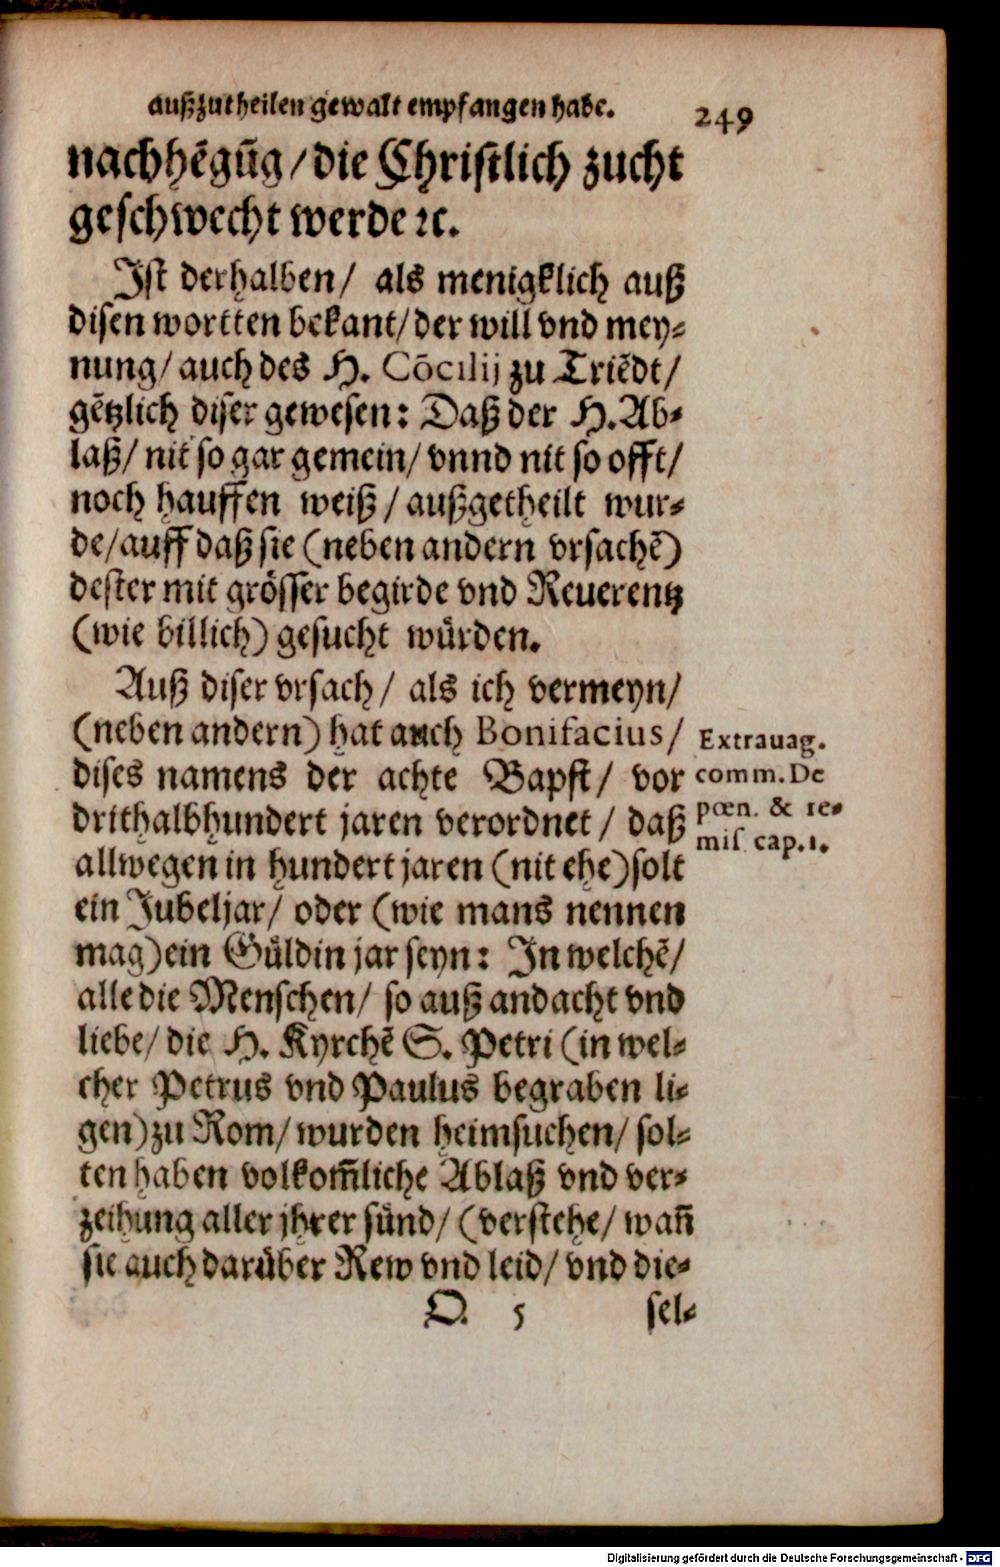 außzutheilen gewalt empfangen habe. 249
nachhẽgũg/die Christlich zucht
geschwecht werde ꝛc.
Ist derhalben/ als menigklich auß
disen wortten bekant/der will vnd mey-
nung/auch des H. Cõcilij zu Triẽdt/
gẽtzlich diser gewesen: Daß der H. Ab-
laß/ nit so gar gemein/ vnnd nit so offt/
noch hauffen weiß/außgetheilt wur-
de/auff daß sie (neben andern vrsachẽ)
dester mit grösser begirde vnd Reuerentz
(wie billich) gesucht würden.
Auß diser vrsach/ als ich vermeyn/
(neben andern) hat auch Bonifacius/
dises namens der achte Bapst/ vor
drithalbhundert jaren verordnet/ daß
allwegen in hundert jaren (nit ehe) solt
ein Jubeljar/ oder (wie mans nennen
mag) ein Güldin jar seyn: In welchẽ/
alle die Menschen/ so auß andacht vnd
liebe/ die H. Kyrchẽ S. Petri (in wel-
cher Petrus vnd Paulus begraben li-
gen) zu Rom/ wurden heimsuchen/ sol-
ten haben volkom̃liche Ablaß vnd ver-
zeihung aller jhrer sünd/ (verstehe/ wañ
sie auch darüber Rew vnd leid/ vnd die-
Q 5 sel-
Extrauag.
comm. De
pœn. & re-
mis cap. 1.
Digitalisierung gefördert durch die Deutsche Forschungsgemeinschaft - DFG